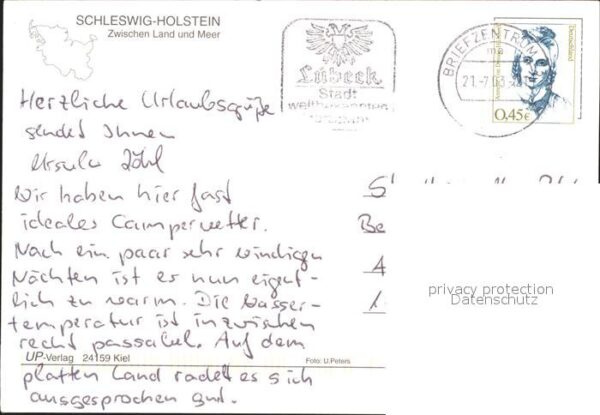 SCHLESWIG-HOLSTEIN
Zwischen Land und Meer
Lübeck
Stadt
weltbekannten
BRIEFZENTRUM
ma
21.-7.03
Deutschland
0,45€
Herzliche Urlaubsgrüße
sendet Ihnen
Ursula
Wir haben hier fast
ideales Camperwetter.
Nach ein paar sehr windigen
Nächten ist es nun eigent-
lich zu warm. Die Wasser-
temperatur ist inzwischen
recht passabel. Auf dem
UP-Verlag 24159 Kiel
Foto: U.Peters
platten Land radelt es sich
ausgesprochen gut.
privacy protection
Datenschutz